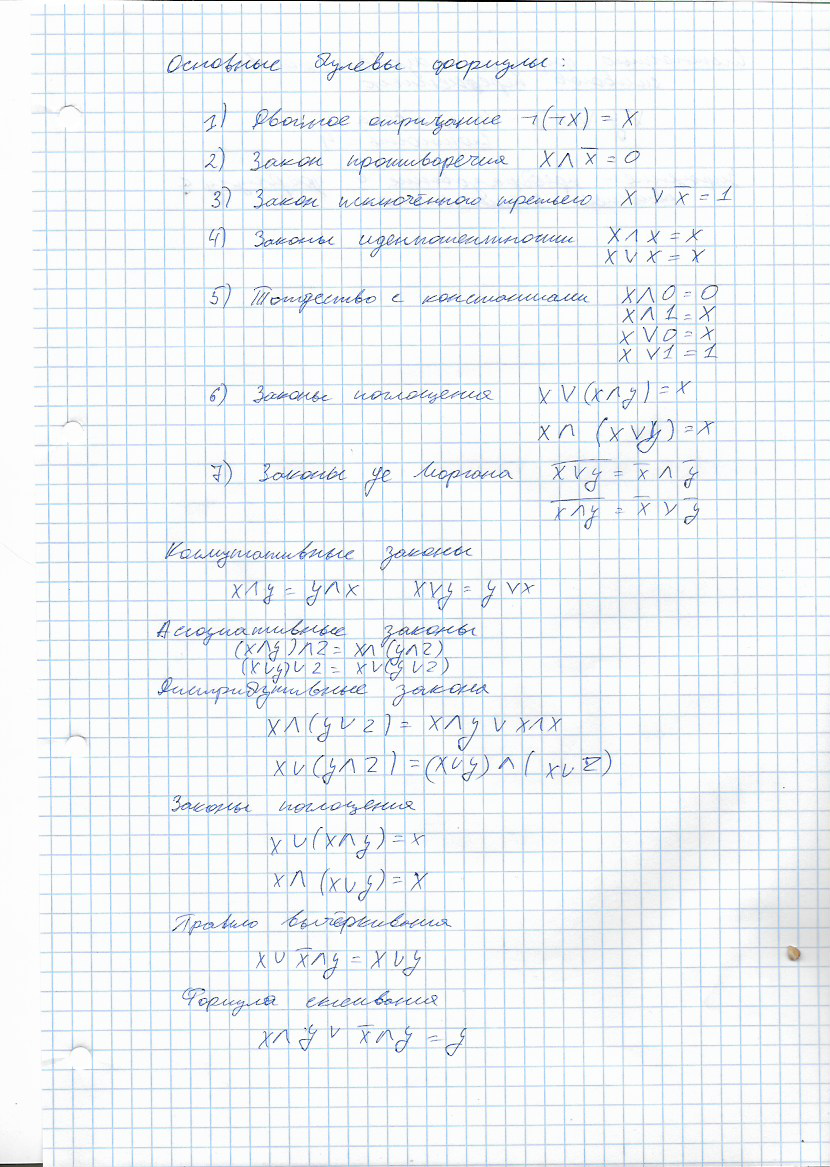 Основные булевы формулы:
1) Двойное отрицание ¬(¬x) = x
2) Закон противоречия x ∧ x̅ = 0
3) Закон исключённого третьего x ∨ x̅ = 1
4) Законы идемпотентности x ∧ x = x
x ∨ x = x
5) Тождество с константами x ∧ 0 = 0
x ∧ 1 = x
x ∨ 0 = x
x ∨ 1 = 1
6) Законы поглощения x ∨ (x ∧ y) = x
x ∧ (x ∨ y) = x
7) Законы де Моргана \overline{x ∨ y} = x̅ ∧ y̅
\overline{x ∧ y} = x̅ ∨ y̅
Коммутативные законы
x ∧ y = y ∧ x x ∨ y = y ∨ x
Ассоциативные законы
(x ∧ y) ∧ z = x ∧ (y ∧ z)
(x ∨ y) ∨ z = x ∨ (y ∨ z)
Дистрибутивные закона
x ∧ (y ∨ z) = x ∧ y ∨ x ∧ x
x ∨ (y ∧ z) = (x ∨ y) ∧ (x ∨ z)
Законы поглощения
x ∨ (x ∧ y) = x
x ∧ (x ∨ y) = x
Правило вычёркивания
x ∨ x̅ ∧ y = x ∨ y
Формула склеивания
x ∧ y ∨ x̅ ∧ y = y